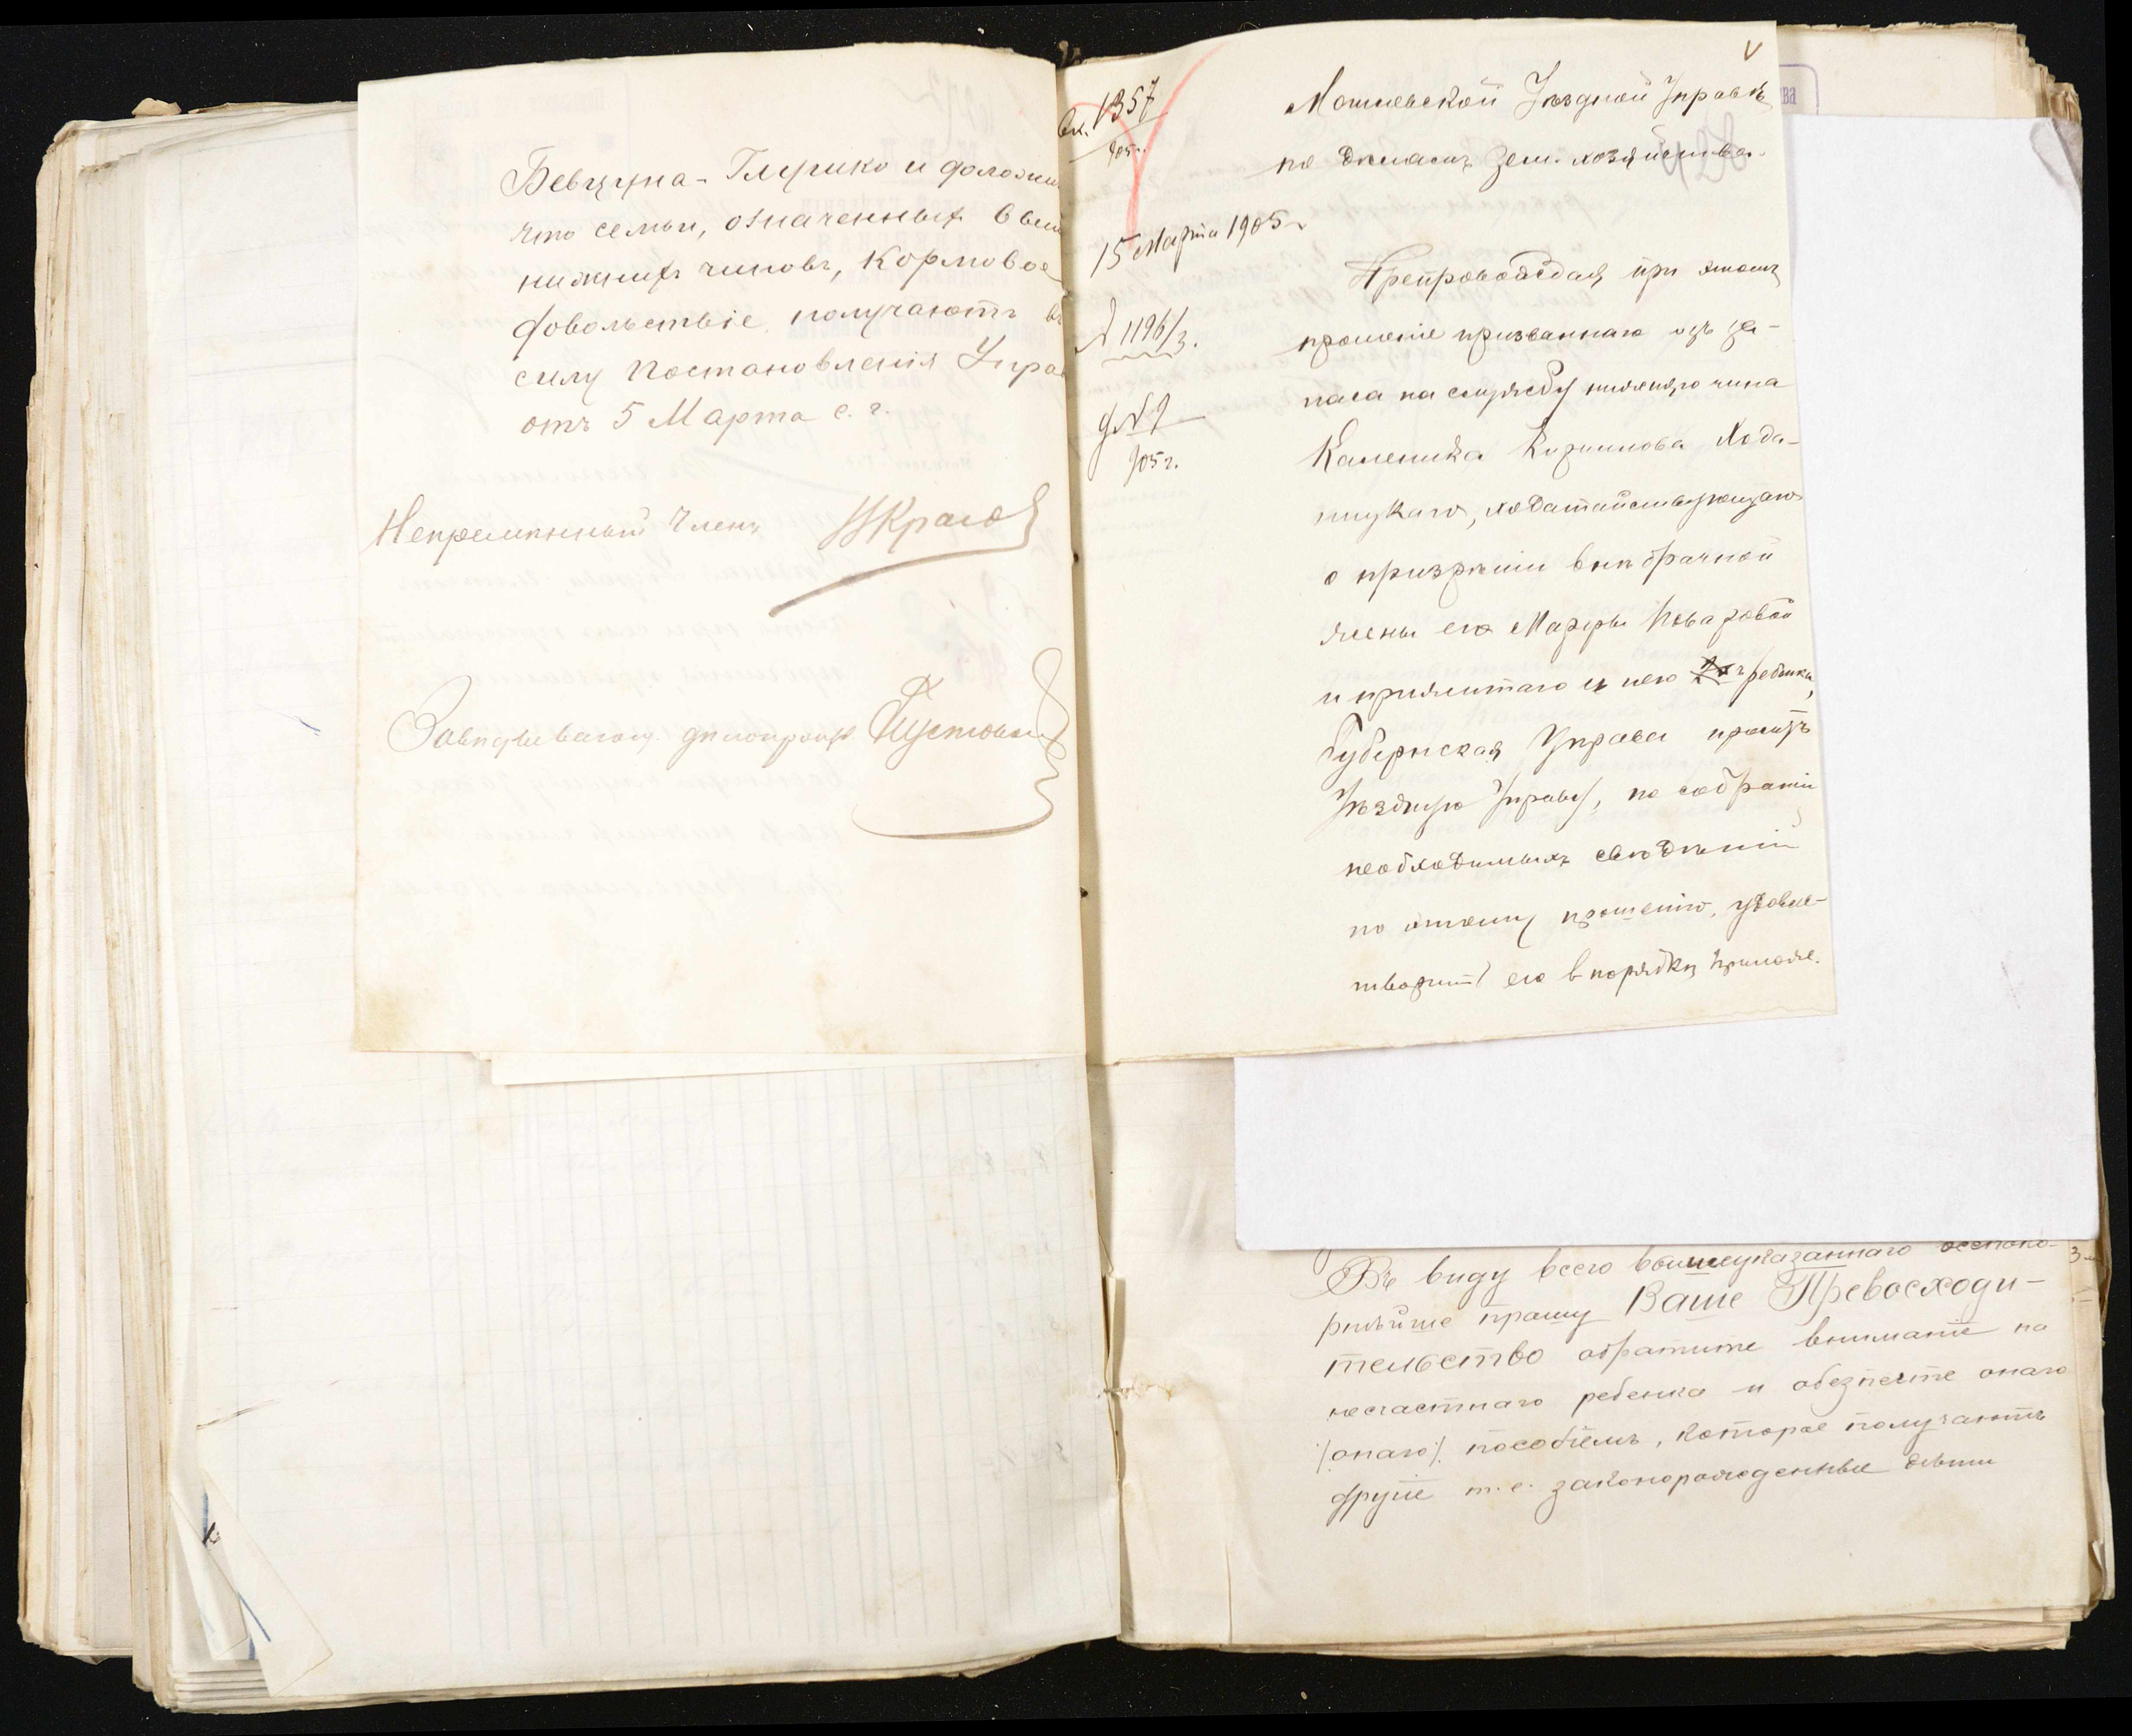 Бевзуна-Глушко и доложи
что семьи, означенныхъ въ
нижнихъ чиновъ, кормовое
довольствіе получаютъ въ
силу постановленія Упра
отъ 5 Марта с. г.
Непремѣнный Членъ
Завѣдывающ. дѣлопроизв.
Вх. 1357
905 г.
15 Марта 1905 г.
№ 1196/3.
д № 9
905 г.
Могилевской Уѣздной Управѣ
по дѣламъ зем. хозяйства.
Препровождая при этомъ
прошеніе призваннаго изъ за-
паса на службу нижняго чина
Каленика Кириллова Хода-
ницкаго, ходатайствующаго
о призрѣніи внѣбрачной
жены его Марфы
и прижитаго ею ребенка,
Губернская Управа проситъ
Уѣздную Управу, по собраніи
необходимыхъ свѣдѣній
по этому прошенію, удовле-
творить его въ порядкѣ прилож.
Въ виду всего вышеуказаннаго всепоко-
рнѣйше прошу Ваше Превосходи-
тельство обратите вниманіе на
несчастнаго ребенка и обезпечте онаго
/онаго/ пособіемъ, которое получаютъ
другіе т. е. законорожденные дѣти